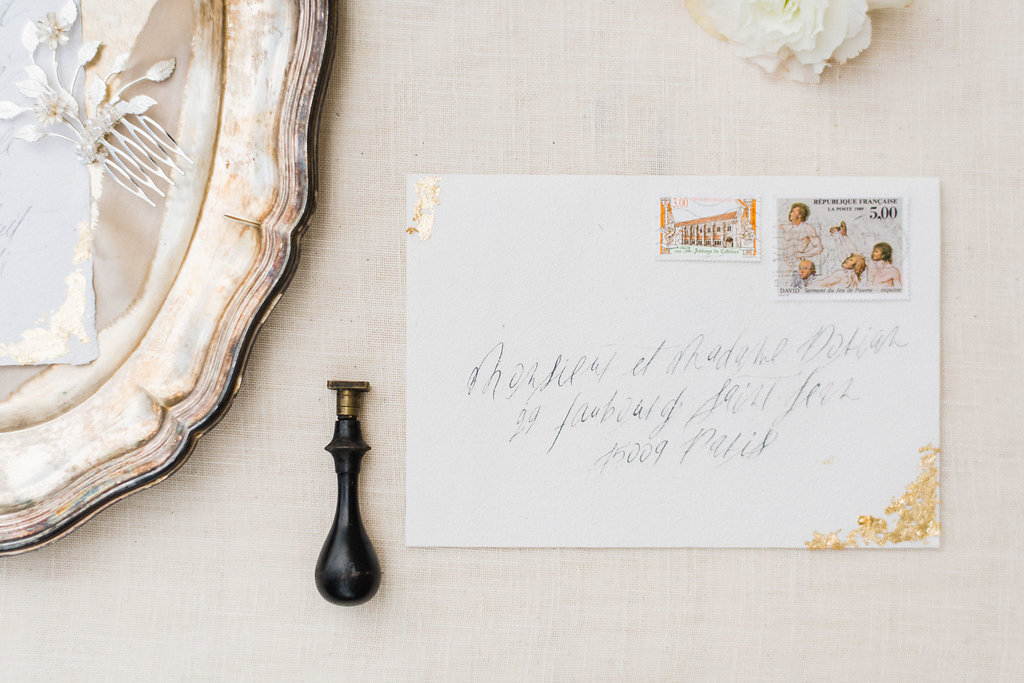 3.00
Abbaye de Cîteaux
RÉPUBLIQUE FRANÇAISE
LA POSTE 1989
5,00
DAVID Serment du Jeu de Paume - esquisse
Monsieur et Madame Dorian
29 faubourg Saint Jean
75009 Paris